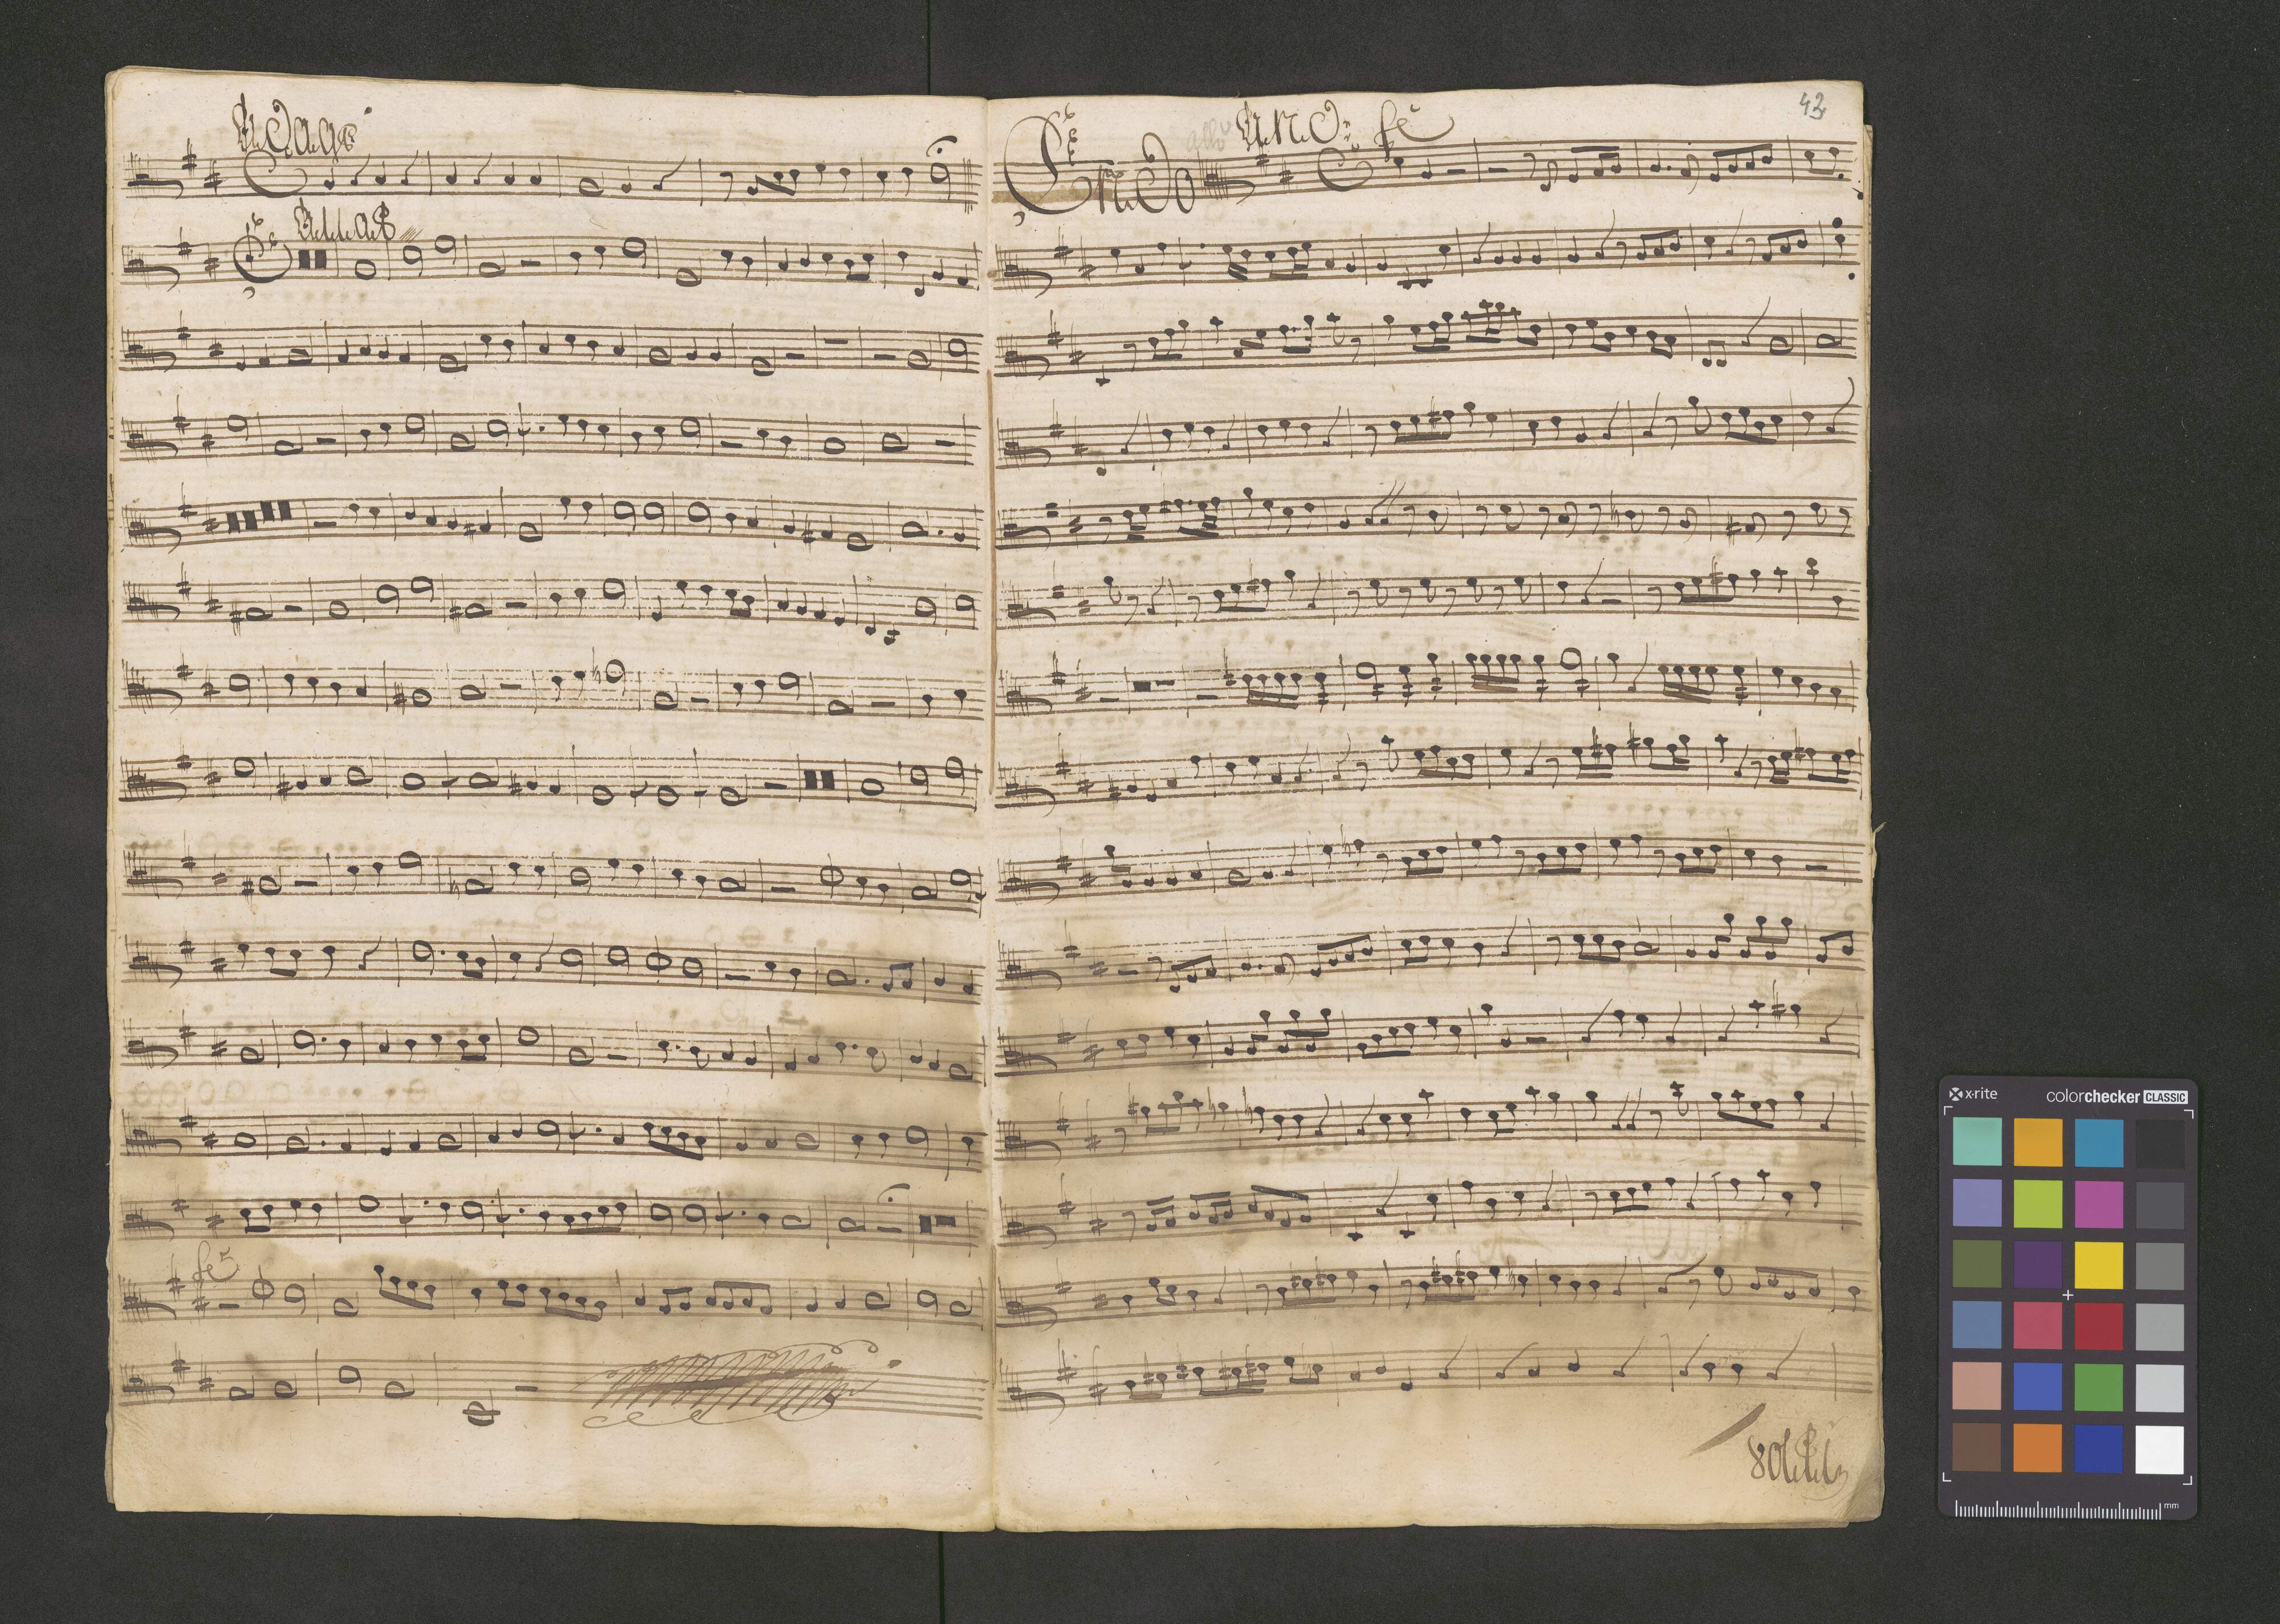 Adag
Allab
fe
Credo
allo
Uno: fe
43
volti
x·rite
colorchecker CLASSIC
mm